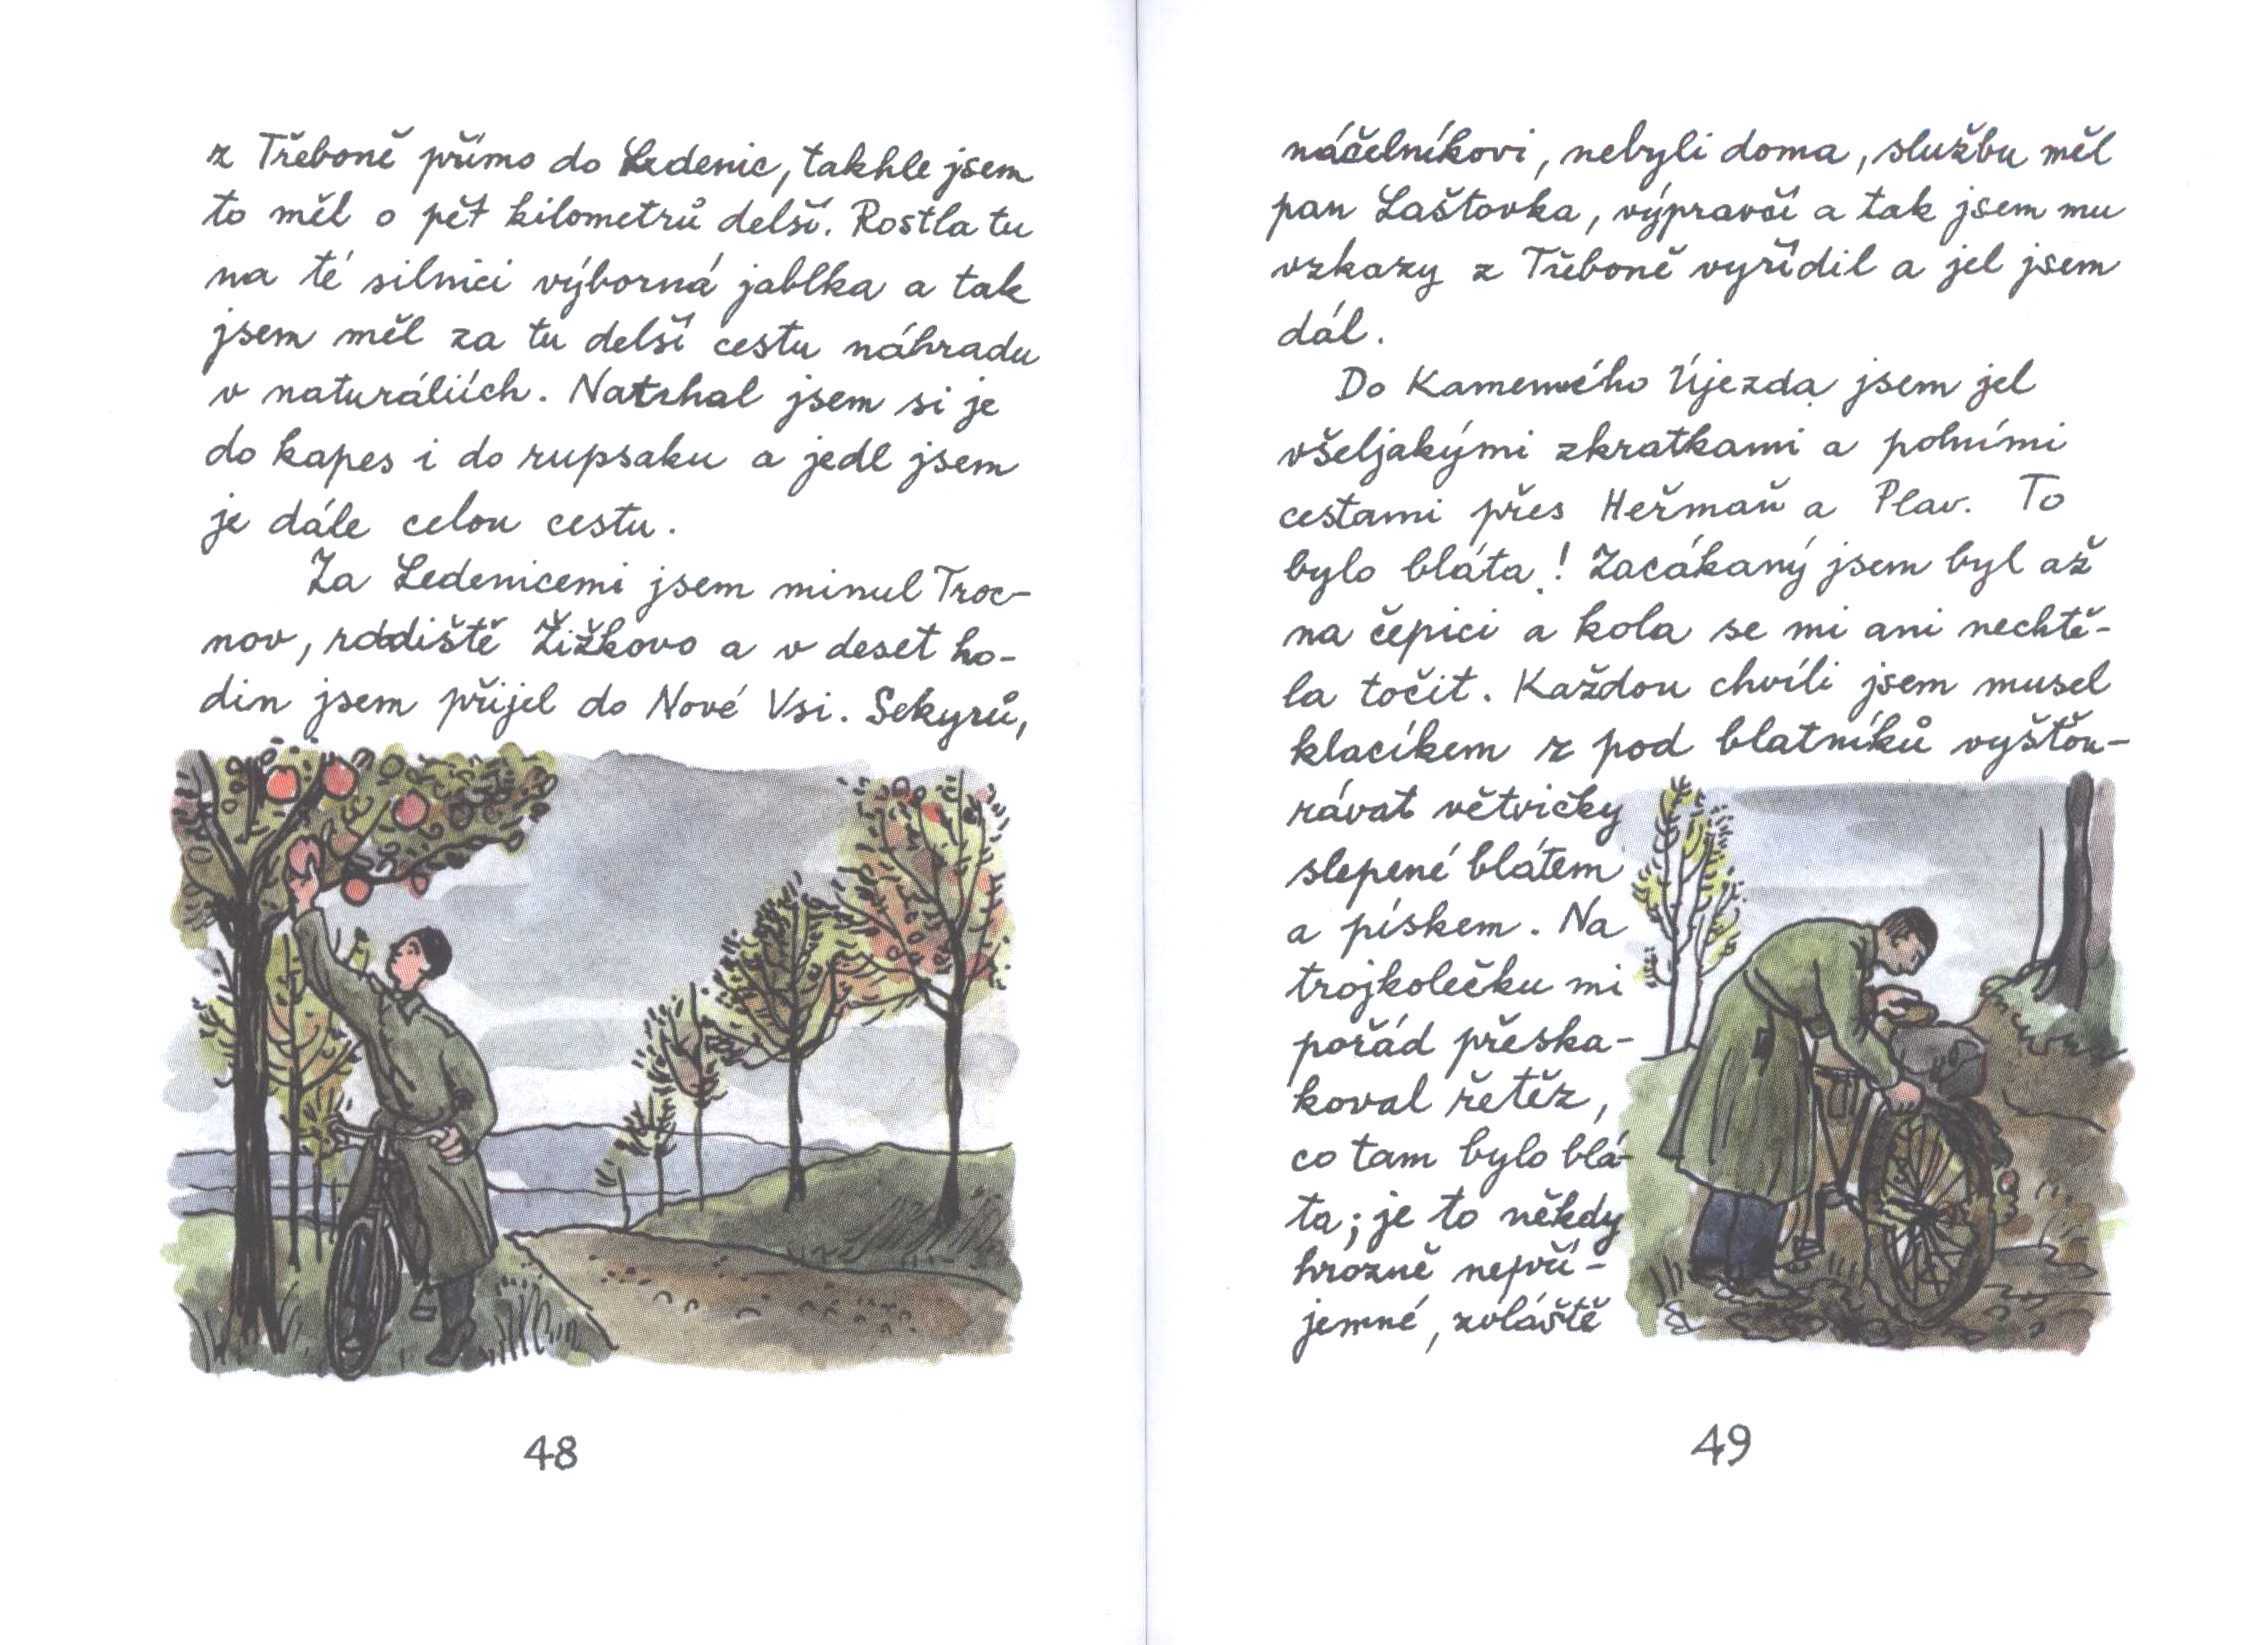 z Třeboně přímo do Ledenic, takhle jsem
to měl o pět kilometrů delší. Rostla tu
na té silnici výborná jablka a tak
jsem měl za tu delší cestu náhradu
v naturáliích. Natrhal jsem si je
do kapes i do rupsaku a jedl jsem
je dále celou cestu.
Za Ledenicemi jsem minul Troc-
nov, rodiště Žižkovo a v deset ho-
din jsem přijel do Nové Vsi. Sekyrů,
48
náčelníkovi, nebyli doma, službu měl
pan Laštovka, výpravčí a tak jsem mu
vzkazy z Třeboně vyřídil a jel jsem
dál.
Do Kamenného Újezda jsem jel
všeljakými zkratkami a polními
cestami přes Heřmaň a Plav. To
bylo bláta! Zacákaný jsem byl až
na čepici a kola se mi ani nechtě-
la točit. Každou chvíli jsem musel
klacíkem z pod blatníků vyšťou-
rávat větvičky
slepené blátem
a pískem. Na
trojkolečku mi
pořád přeska-
koval řetěz,
co tam bylo blá-
ta; je to někdy
hrozně nepří-
jemné, zvláště
49